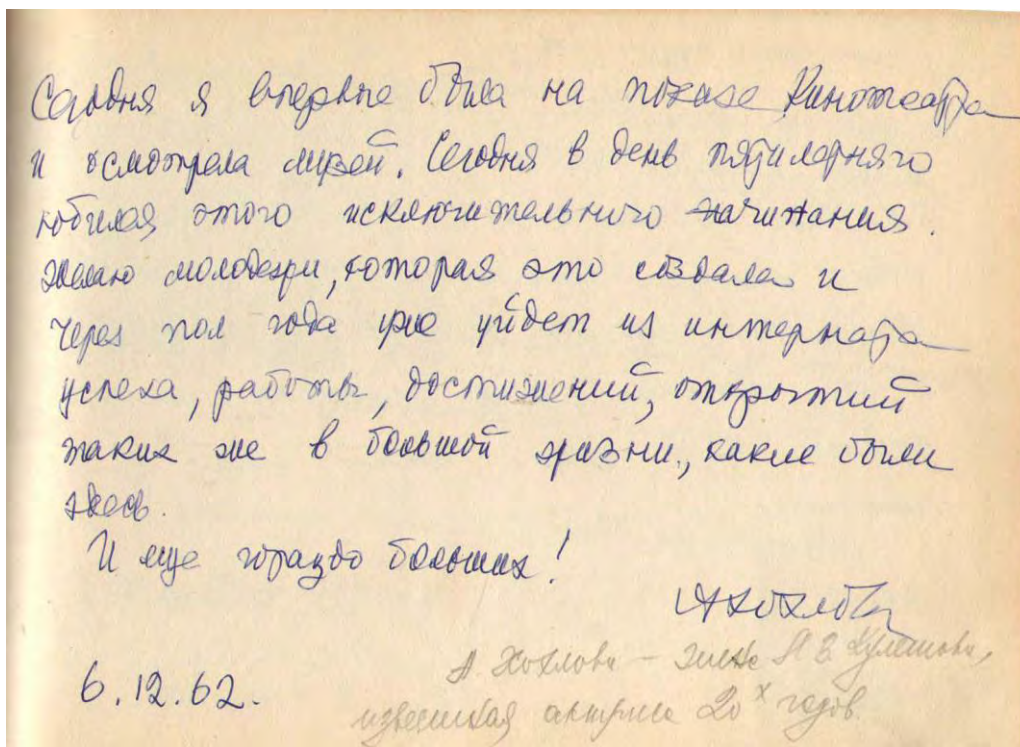 Сегодня я впервые была на показе Кинотеатра
и осмотрела музей. Сегодня в день пятилетнего
юбилея этого исключительного начинания.
Желаю молодежи, которая это создала и
через пол года уже уйдет из интерната
успеха, работы, достижений, открытий
таких же в большой жизни, какие были
здесь.
И еще гораздо больших!
АХохлова
А. Хохлова – жена Л В Кулешова,
6.12.62.
известная актриса 20х годов.